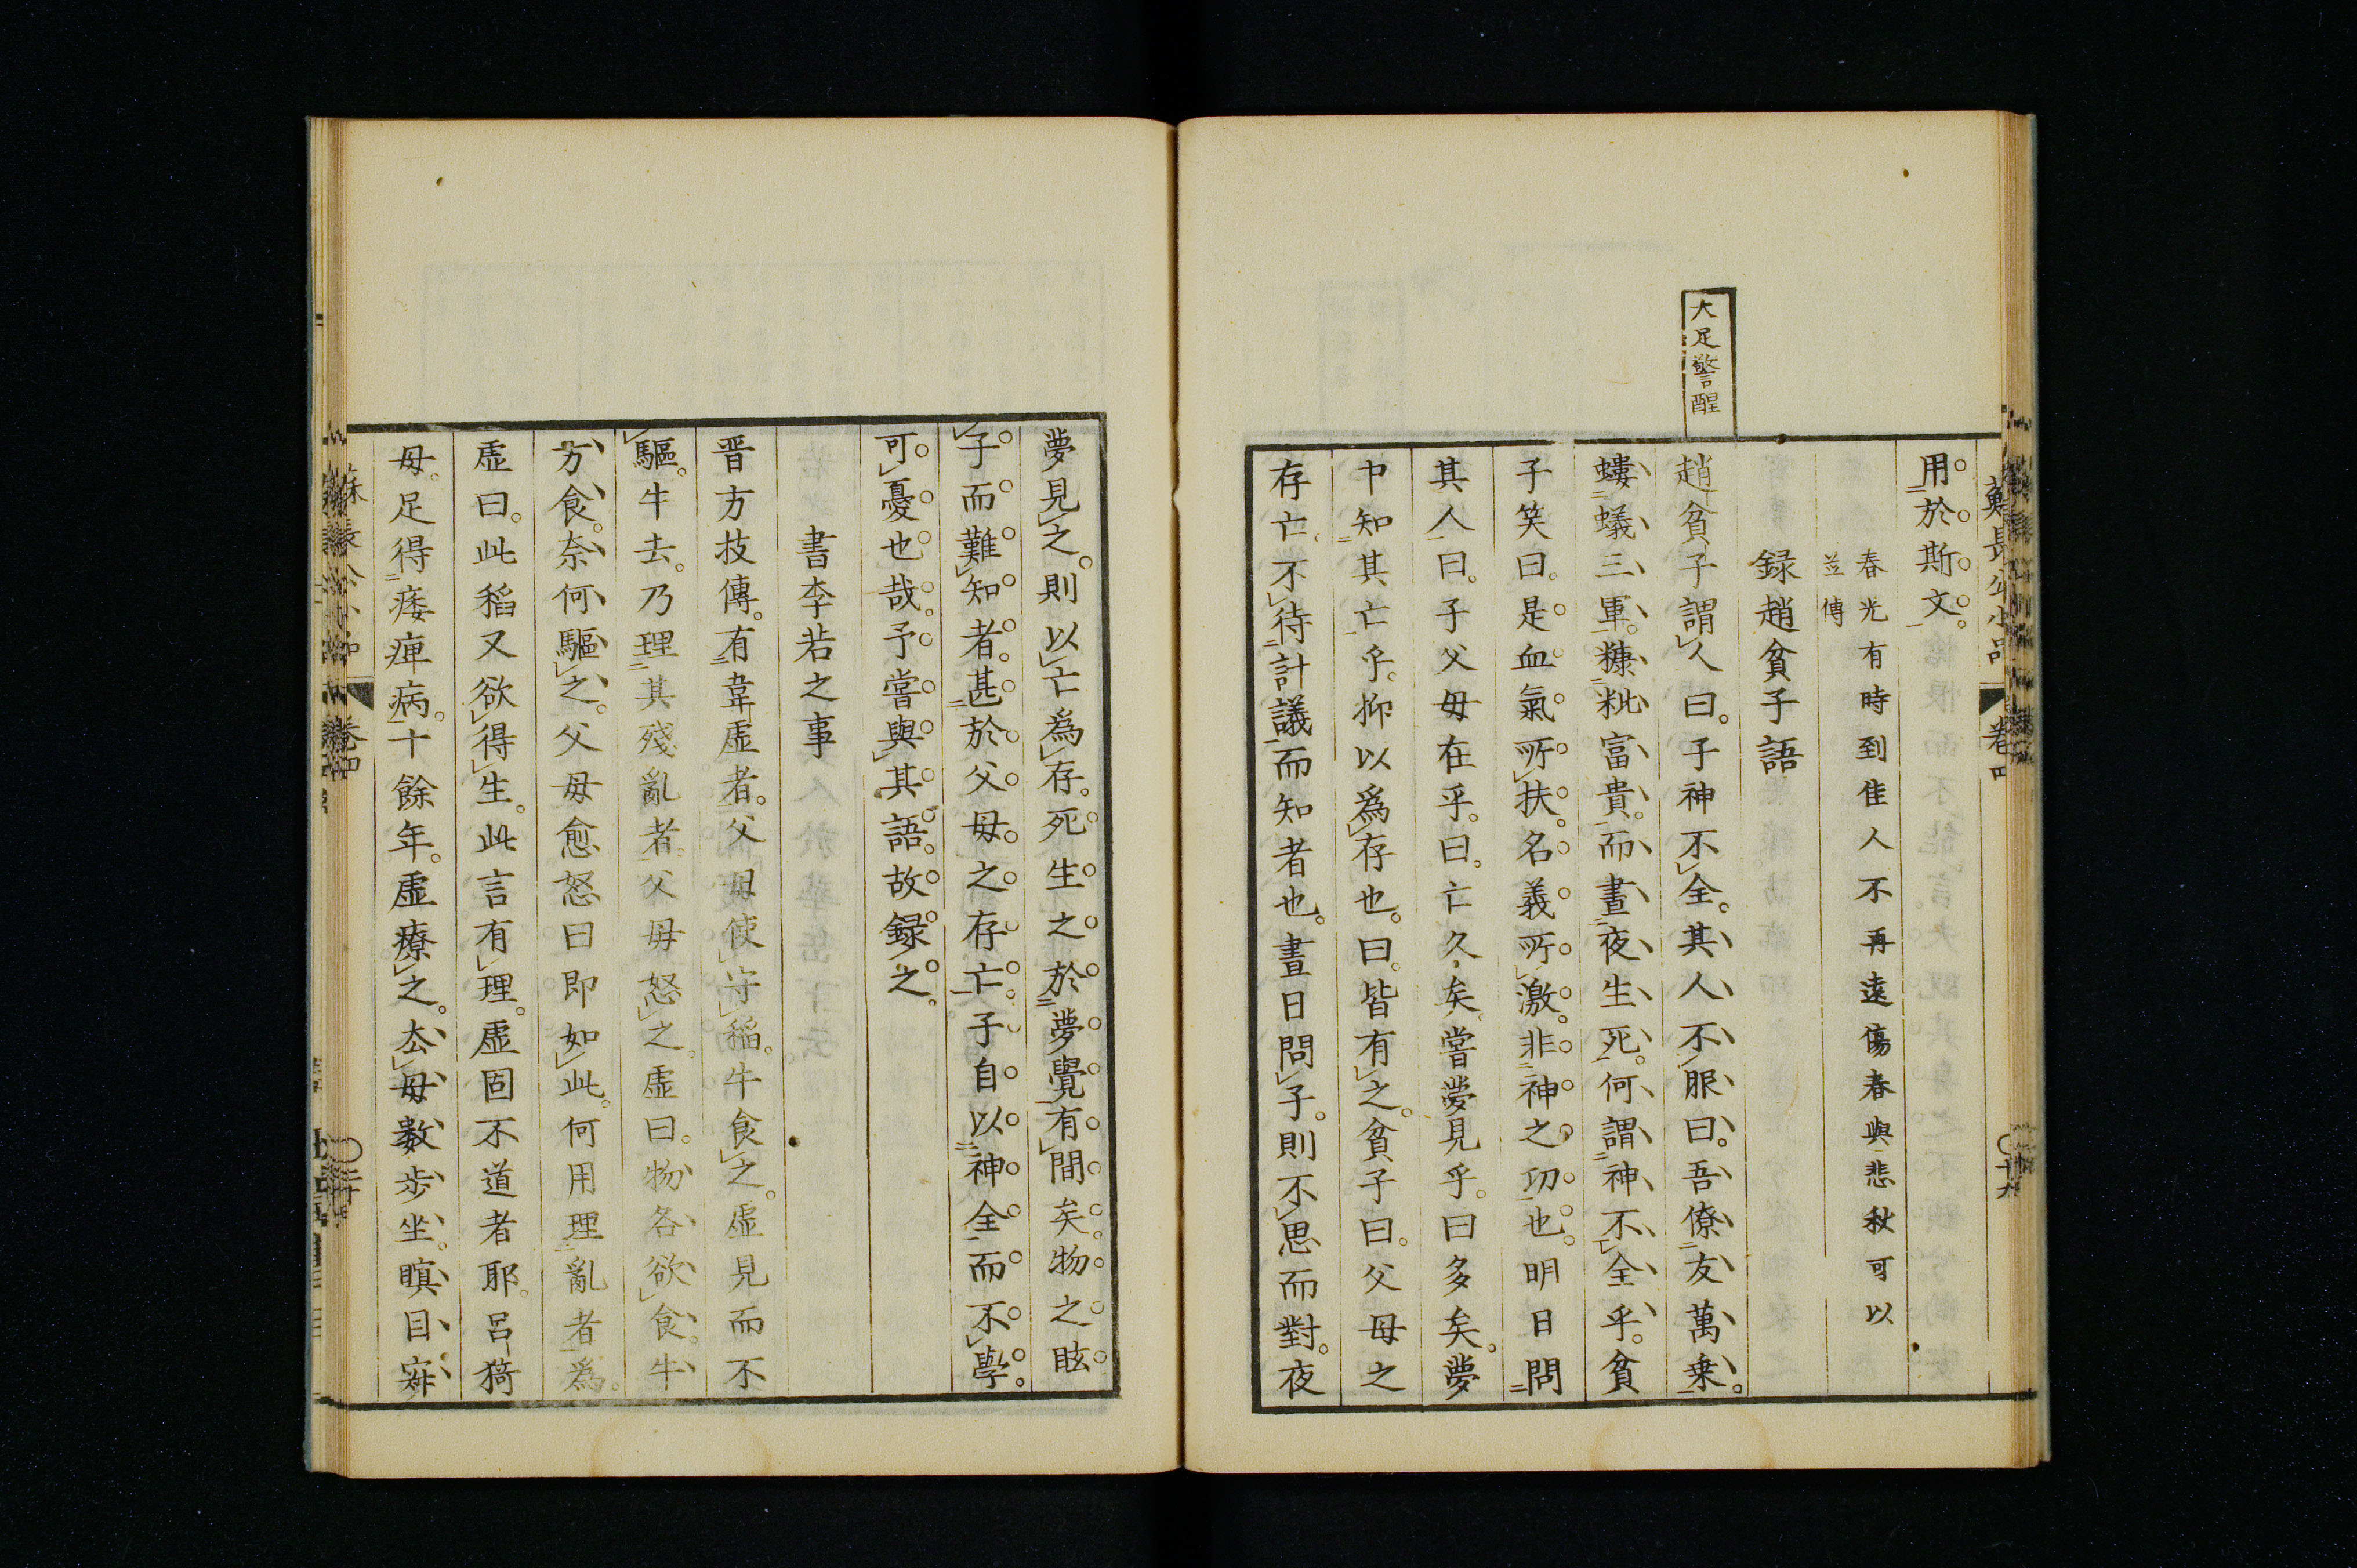 蘇長公小品 卷四
用於斯文。
春光有時到佳人不再遠傷春與悲秋可以
並傳
録趙貧子語
大足警醒
趙貧子謂人曰。子神不全。其人不服曰。吾僚友萬乗。
螻蟻三軍。糠粃富貴。而晝夜生死。何謂神不全乎。貧
子笑曰。是血氣所扶。名義所激。非神之功也。明日問
其人曰。子父母在乎。曰。亡久矣。嘗夢見乎。曰多矣。夢
中知其亡乎。抑以爲存也。曰。皆有之。貧子曰。父母之
存亡。不待計議而知者也。晝日問子。則不思而對。夜
夢見之。則以亡爲存。死生之於夢覺有間矣。物之眩
子而難知者。甚於父母之存亡。子自以神全而不學。
可憂也哉。予嘗與其語。故録之。
書李若之事
晋方技傳。有韋虛者。父母使守稲。牛食之。虛見而不
驅。牛去。乃理其殘亂者。父母怒之。虛曰。物各欲食。牛
方食。奈何驅之。父母愈怒曰即如此。何用理亂者爲。
虛曰。此稲又欲得生。此言有理。虛固不道者耶。呂猗
母。足得痿痺病。十餘年。虛療之。去母數步坐。瞑目寂